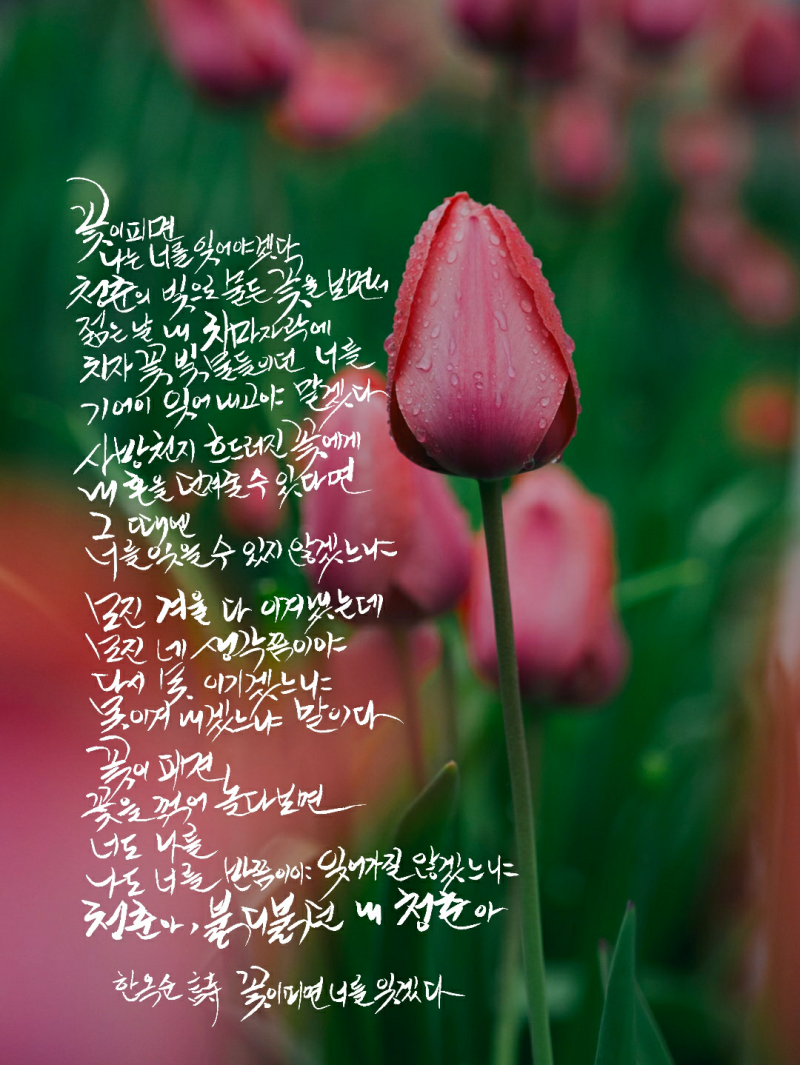 꽃이 피면
나는 너를 잊어야겠다
청춘의 빛으로 물든 꽃을 보면서
젊은 날 내 치마자락에
치자 꽃빛 물들이던 너를
기어이 잊어 내고야 말겠다
사방천지 흐드러진 꽃에게
내 혼을 던져줄 수 있다면
그 때엔
너를 잊을 수 있지 않겠느냐
모진 겨울 다 이겨냈는데
모진 네 생각쯤이야
다시 못 이기겠느냐
못이겨 내겠느냐 말이다
꽃이 피전
꽃을 꺾어 놓다보면
너도 나를
나도 너를 반쯤이야 잊어가질 않겠느냐
청춘아, 붉디붉던 내 청춘아
한옥순 詩 꽃이 피면 너를 잊겠다